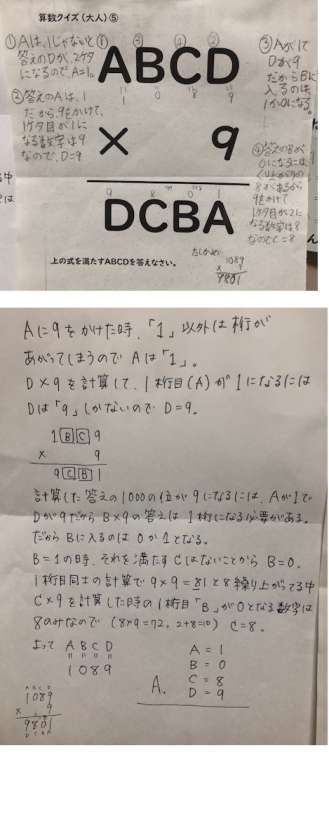 算数クイズ(大人)⑤
① Aは、1じゃないと
答えのDが、2ケタ
になるので A=1。
② 答えのAは、1
だから、9をかけて、
1ケタ目が1に
なる数字は9
なので、D=9
① ③ ④ ②
ABCD
1 0 8 9
× 9
9 8 0 1
DCBA
③ Aが1で
Dが9
だからBに
入るのは、
1か0になる。
④ 答えのBが
0になるには
くり上がりの
8があるから
9をかけて
1ケタ目が2に
なる数字は8
なのでC=8
上の式を満たすABCDを答えなさい。
たしかめ
1089
× 9
9801
Aに9をかけた時、「1」以外は桁が
あがってしまうので Aは「1」。
D×9を計算して、1桁目(A)が1になるには
Dは「9」しかないので D=9。
1 B C 9
× 9
9 C B 1
計算した答えの1000の位が9になるには、Aが1で
Dが9だから B×9の答えは1桁になる必要がある。
だからBに入るのは 0か1となる。
B=1の時、それを満たすCはないことから B=0。
1桁目同士の計算で 9×9=81と8繰り上がってる中
C×9を計算した時の1桁目「B」が0となる数字は
8のみなので (8×9=72, 2+8=10) C=8。
よって A B C D
1 0 8 9
A = 1
B = 0
C = 8
D = 9
A.
A B C D
1089
× 9
9801
D C B A